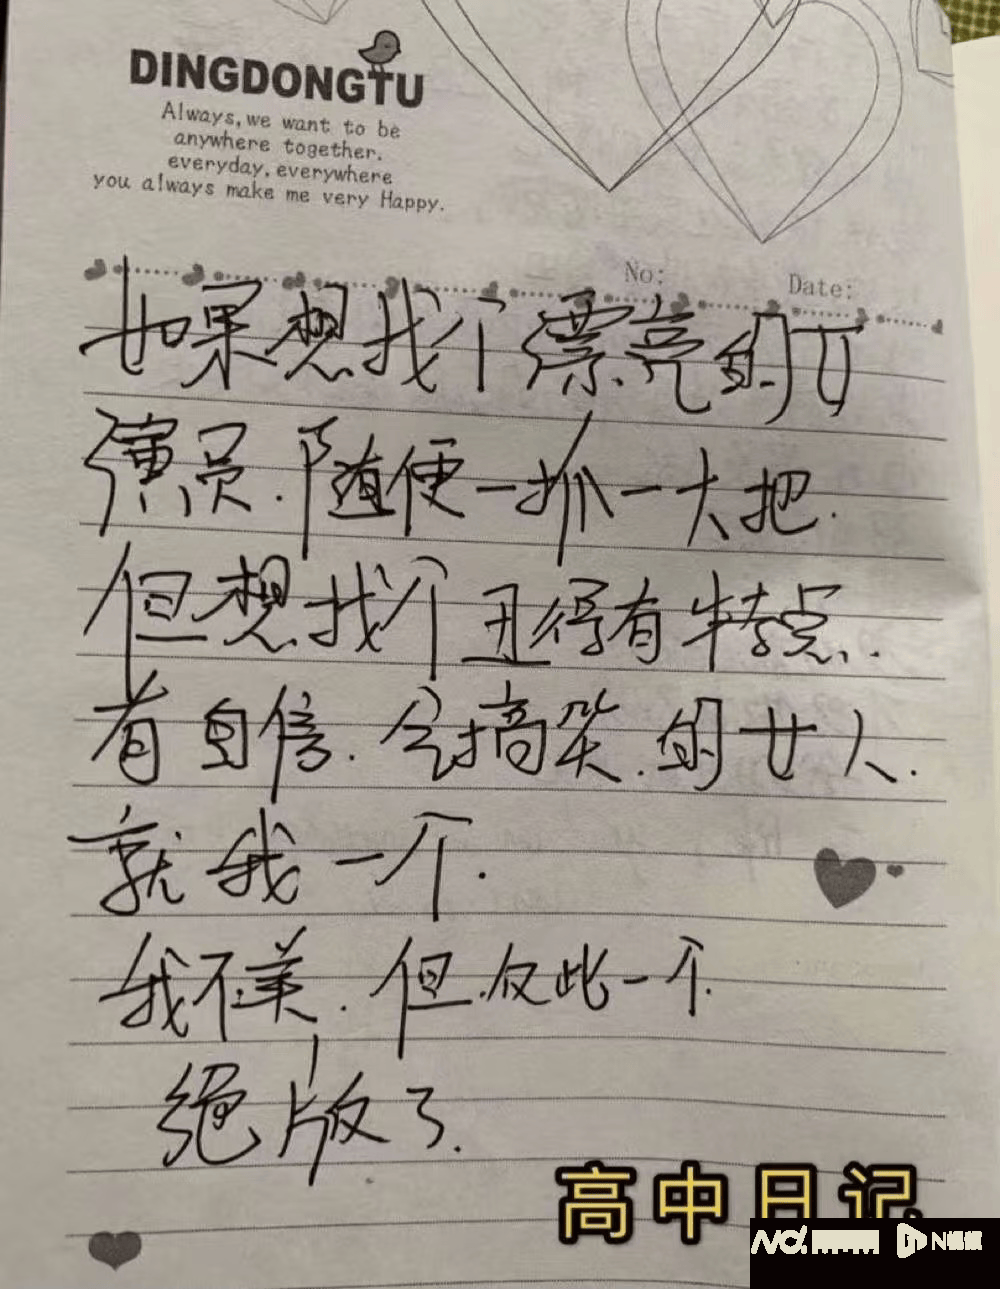 DINGDONGTU
Always, we want to be
anywhere together.
everyday, everywhere
you always make me very Happy.
No:
Date:
如果想找个漂亮的女
演员.随便一抓一大把.
但想找个丑得有特点.
有自信.会搞笑.的女人.
就我一个.
我不美.但.仅此一个.
绝版了.
高中日记
N视频